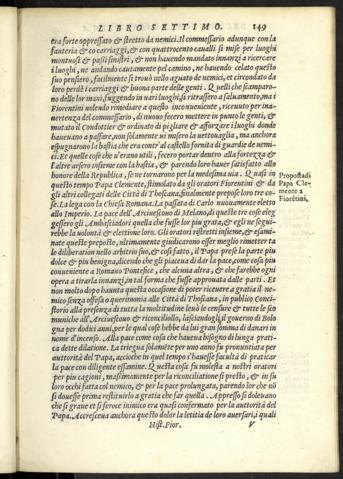 LIBRO SETTIMO. 149
era forte oppressato & stretto da nemici. Il commessario adunque con la
fanteria & co carriaggi, & con quattrocento caualli si mise per luoghi
montuosi & passi sinistri, & non hauendo mandato innanzi à ricercare
i luoghi, ne andando cautamente pel camino, ne hauendo celato questo
suo pensiero, facilmente si trouò nello aguato de nemici, et circondato da
loro perdè i carriaggi & buona parte delle genti. Quelli che scamparo-
no delle lor mani, fuggendo in uari luoghi, si ritrassero a saluamento, ma i
Fiorentini uolendo rimediare a questo inconueniente, riceuuto per ina-
uertenza del commessario, di nuouo fecero mettere in punto le genti, &
mutato il Condottier & ordinato di pigliare & afforzare i luoghi donde
haueuano a passare, non solamente ui misero la uettouaglia, ma anchora
espugnarono la bastia che era contr'al castello fornita di guardie de nemi-
ci. Et quelle cose che u'erano utili, fecero portar dentro alla fortezza &
l'altre arsero insieme con la bastia, & parendo loro hauer satisfatto allo
honore della Republica, se ne tornarono per la medesima uia. Quasi in
questo tempo Papa Clemente, stimolato da gli oratori Fiorentini & da
gli altri collegati delle Città di Thoscana, finalmente propose loro tre co-
se. La lega con la Chiesa Romana. La passata di Carlo nuouamente eletto
allo Imperio. La pace dell'Arciuescouo di Melano, di queste tre cose eleg
gessero gli Ambasciadori quella che fusse lor piu grata, & egli ne segui-
rebbe la uolontà & elettione loro. Gli oratori ristretti insieme, & esami-
nate queste proposte, ultimamente giudicarono esser meglio rimetter ta
le diliberation nello arbitrio suo, & così fatto, il Papa prese la parte piu
dolce & piu benigna, dicendo che gli piaceua di dar la pace, come cosa piu
conueniente a Romano Pontefice, che alcuna altra, & che farebbe ogni
opera a tirarla innanzi, in tal forma che fusse approuata dalle parti. Et
non molto dopo hauuta questa occasione di poter riceuere a gratia il ne-
mico senza offesa o querimonia alle Città di Thoscana, in publico Conci-
storio alla presenza di tutta la moltitudine leuò le censure & tutte le sco
muniche all'Arciuescouo & riconciliollo, lasciandogli il gouerno di Bolo
gna per dodici anni, per le qual cose hebbe da lui gran somma di danari in
nome d'incenso. Alla pace come cosa che haueua bisogno di lunga prati-
ca dette dilatione. La triegua solamente per uno anno fu pronuntiata per
auttorità del Papa, accioche in quel tempo s'hauesse facultà di praticar
la pace con diligente essamine. Questa cosa fu molesta a nostri oratori
per piu cagioni, massimamente per la riconciliatione sì presto, & in su
loro occhi fatta col nemico, & per la pace prolungata, parendo lor che nò
si douesse prima restituirlo a gratia che far quella. Appresso si doleuano
che sì graue et sì feroce inimico era quasi confermato per la auttorità del
Papa. Accresceua anchora questo dolor la letitia de loro auersari, i quali
Hist. Fior. V
Proposta di
Papa Cle-
mente a
Fiorétini,